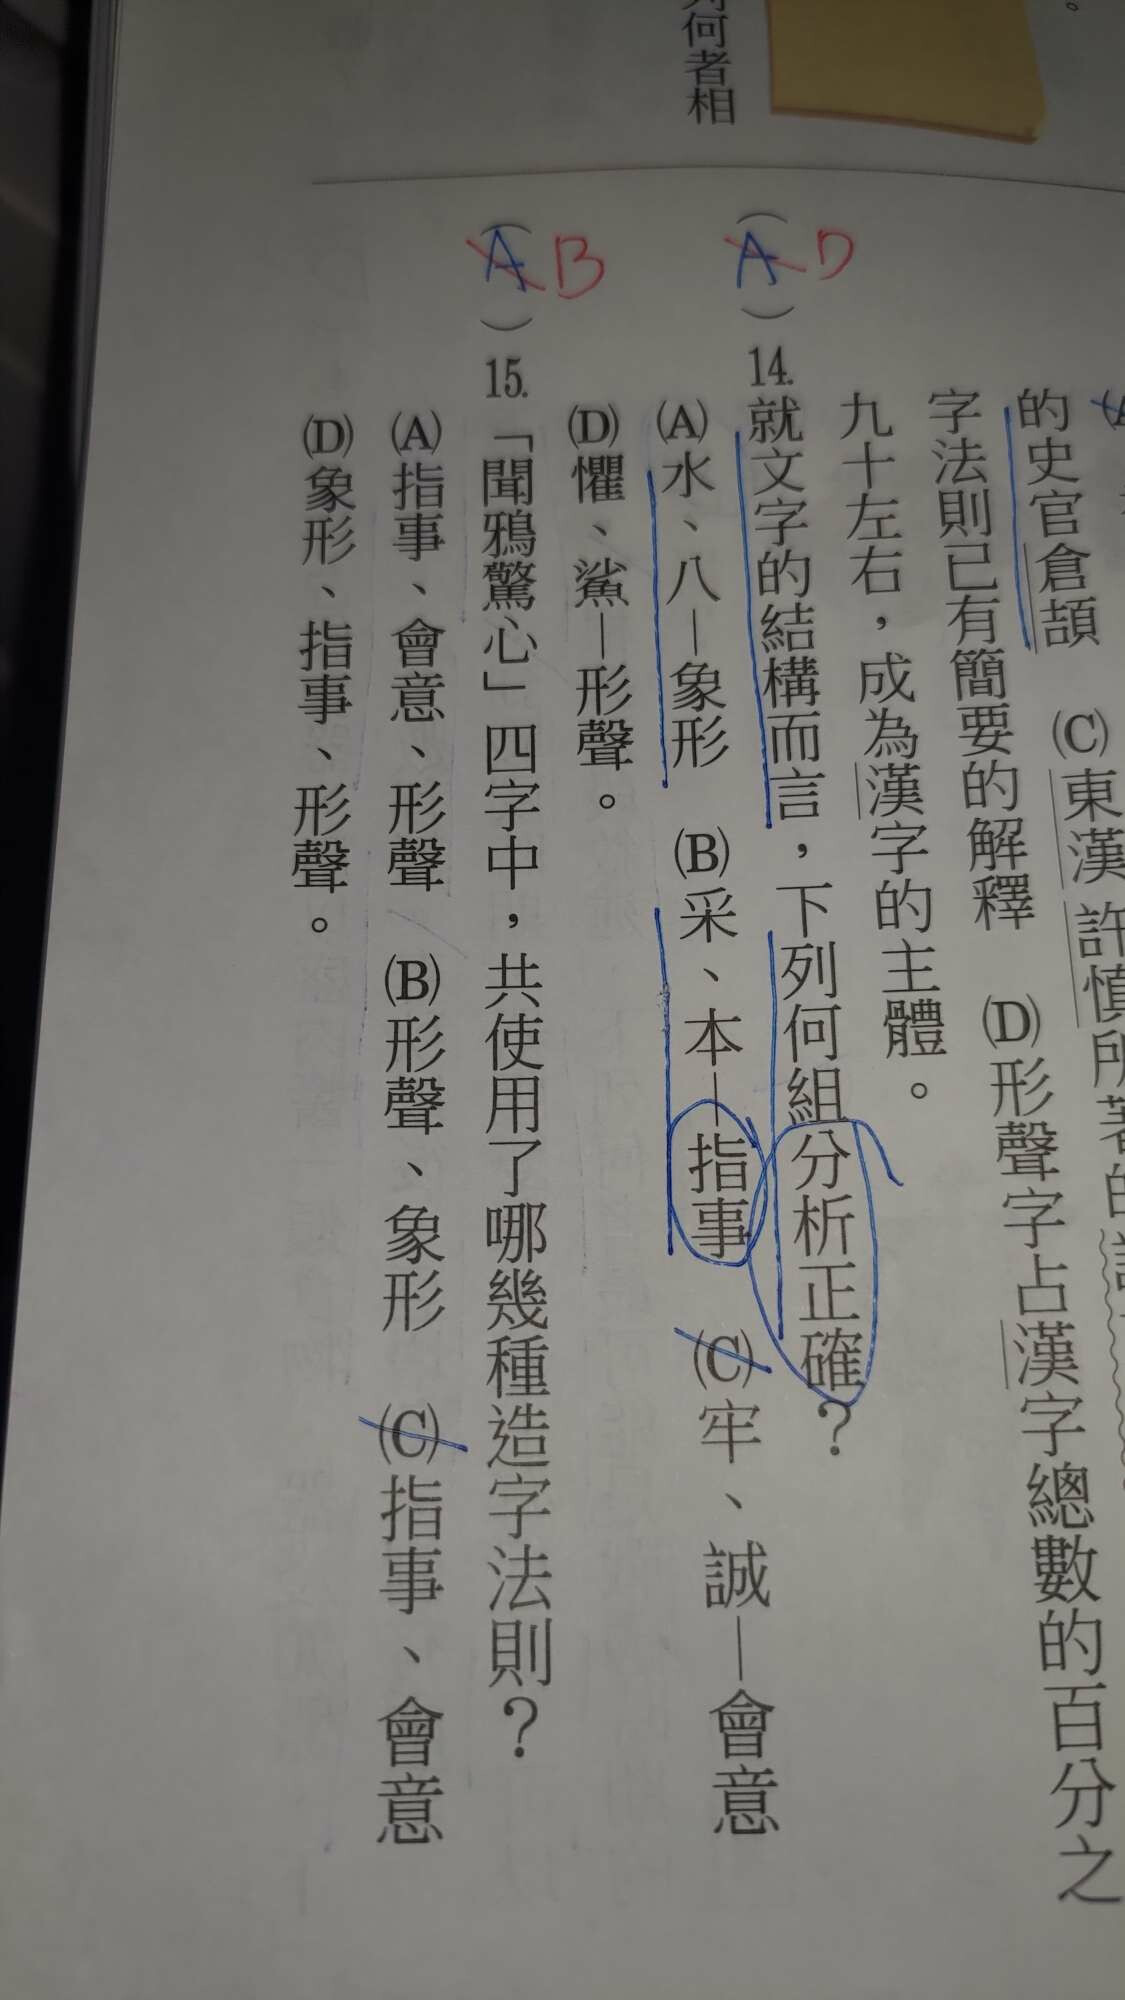 何者相
。
的史官倉頡　(C)東漢許慎所著的
字法則已有簡要的解釋　(D)形聲字占漢字總數的百分之
九十左右，成為漢字的主體。
(A) D
14.就文字的結構而言，下列何組分析正確？
(A)水、八—象形　(B)采、本—指事　(C)牢、誠—會意
(D)懼、鯊—形聲。
(A) B
15.「聞鴉驚心」四字中，共使用了哪幾種造字法則？
(A)指事、會意、形聲　(B)形聲、象形　(C)指事、會意
(D)象形、指事、形聲。